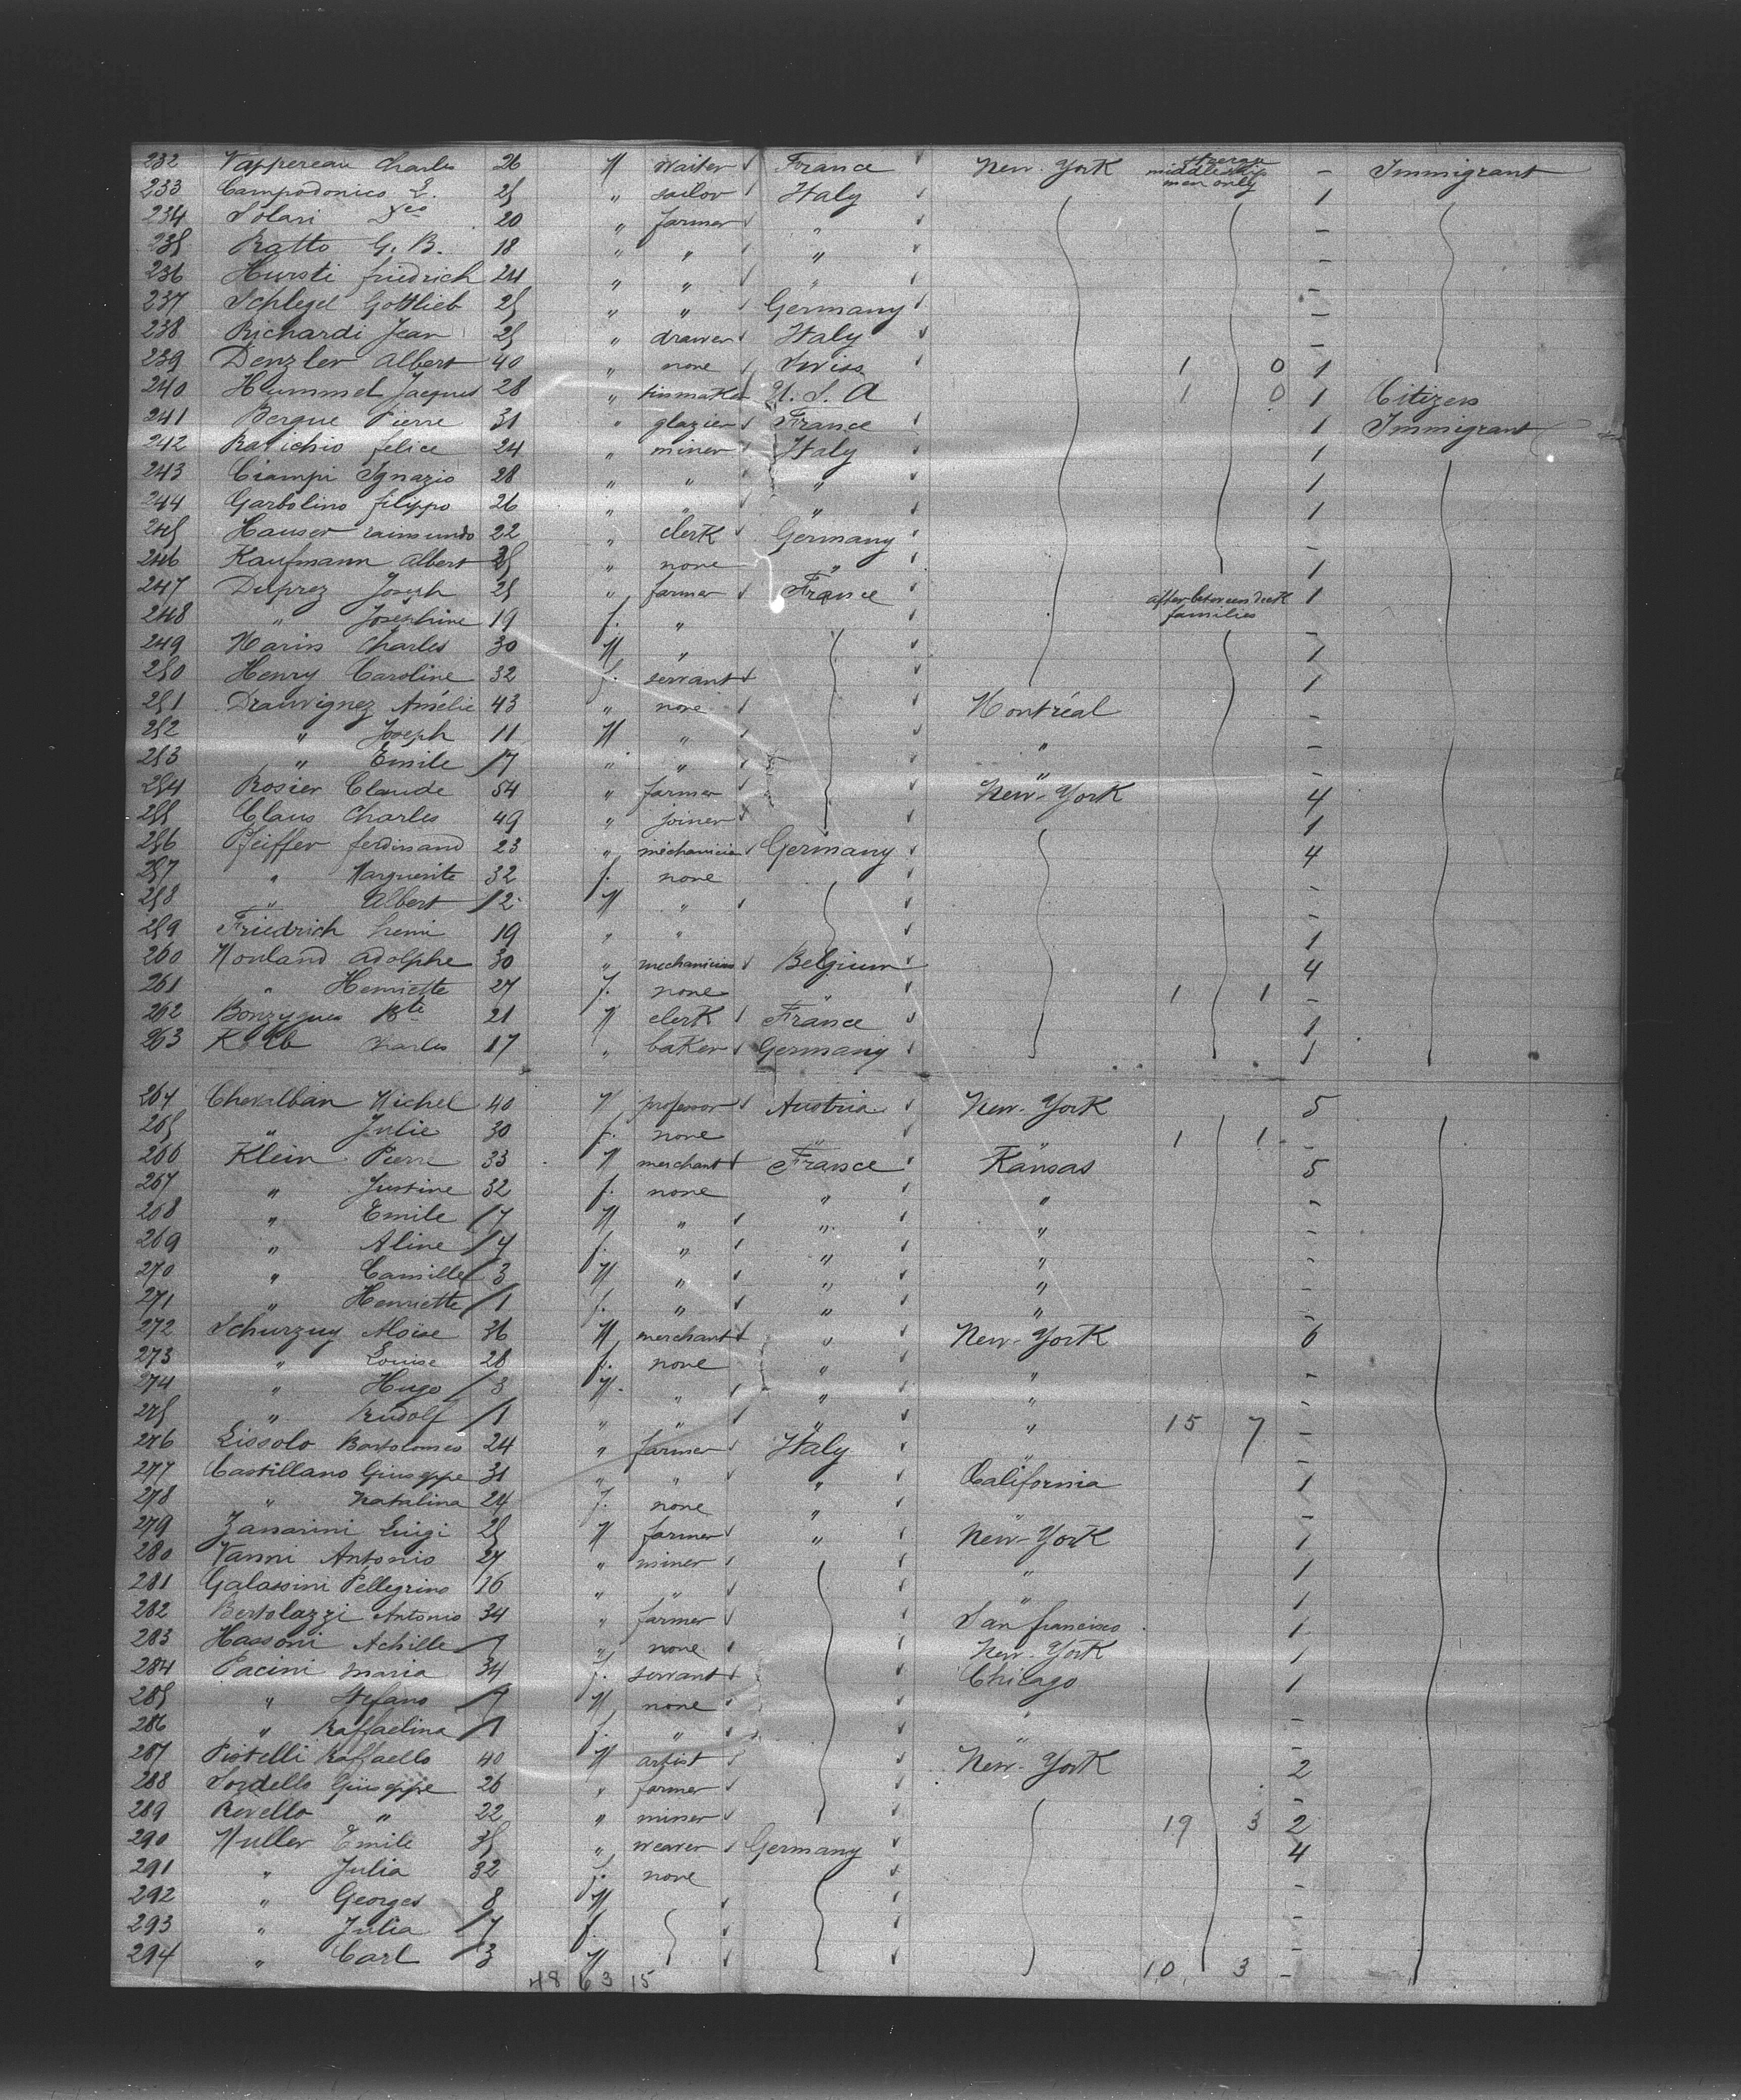 232 Vappereau Charles 26 M waiter France New-York steerage middleship men only - Immigrant
233 Campodonico L. 25 " sailor Italy 1
234 Solari Dco 20 " farmer " -
235 Ratto G. B. 18 " " " -
236 Hursti friedrich 24 " " " -
237 Schlegel Gottlieb 25 " " Germany -
238 Richardi Jean 25 " drawer Italy -
239 Denzler Albert 40 " none Swiss 1 0 1
240 Hummel Jacques 28 " tinmaker U. S. A 1 0 1 Citizen
241 Bergue Pierre 31 " glazier France 1 Immigrant
242 Ratichio felice 24 " miner Italy 1
243 Ciampi Ignazio 28 " " " 1
244 Garbolino filippo 26 " " " 1
245 Hauser raimundo 22 " clerk Germany -
246 Kaufmann Albert " none " 1
247 Duprez Joseph 25 " farmer France after between deck families 1
248 " Josephine 19 f. " -
249 Marin Charles 30 M " 1
250 Henry Caroline 32 f. servant 1
251 Drauvignez Amélie 43 " none Montréal -
252 " Joseph 11 M " " -
253 " Emile 7 " " " -
254 Rosier Claude 54 " farmer New-York 4
255 Claus Charles 49 " joiner 1
256 Pfeiffer ferdinand 23 " méchanicien Germany 4
257 " Marguerite 32 f. none -
258 " Albert 2 M " -
259 Friedrich 19 " " 1
260 Mouland adolphe 30 " mechanician Belgium 4
261 " Henriette 27 f. none " 1 1 -
262 Bonzygues Bte 21 M clerk France 1
263 Kolb Charles 17 " baker Germany 1
264 Chevalban Michel 40 M professor Austria New-York 5
265 " Julie 30 f. none " " 1 1 -
266 Klein Pierre 33 M merchant France Kansas 5
267 " Justine 32 f. none " " -
268 " Emile 7 M " " " -
269 " Aline 4 f. " " " -
270 " Camille 3 M " " " -
271 " Henriette 1 f. " " " -
272 Schurzuy Aloise 36 M merchant " New-York 6
273 " Louise 28 f. none " " -
274 " Hugo 3 M " " " -
275 " Rudolf 1 " " " " 15 7 -
276 Lissolo Bartolomeo 24 " farmer Italy "
277 Castillano Giuseppe 31 " " " California 1
278 " Natalina 24 f. none " " -
279 Zanarini Luigi 25 M farmer " New-York 1
280 Vanni Antonio 27 " miner " 1
281 Galassini Pellegrino 16 " " " 1
282 Bertolazzi Antonio 34 " farmer San francisco 1
283 Massoni Achille 7 " none New-York 1
284 Pacini Maria 34 f. servant Chicago 1
285 " Stefano 7 M none " -
286 " Raffaelina 1 f. " " -
287 Pistelli Raffaello 40 M artist New-York 2
288 Sordello Giuseppe 26 " farmer -
289 Revello " 22 " miner 19 3 2
290 Muller Emile 35 " weaver Germany 4
291 " Julia 32 f. none -
292 " Georges 8 M -
293 " Julia 7 f. -
294 " Carl 3 M 10 3 -
48 63 15